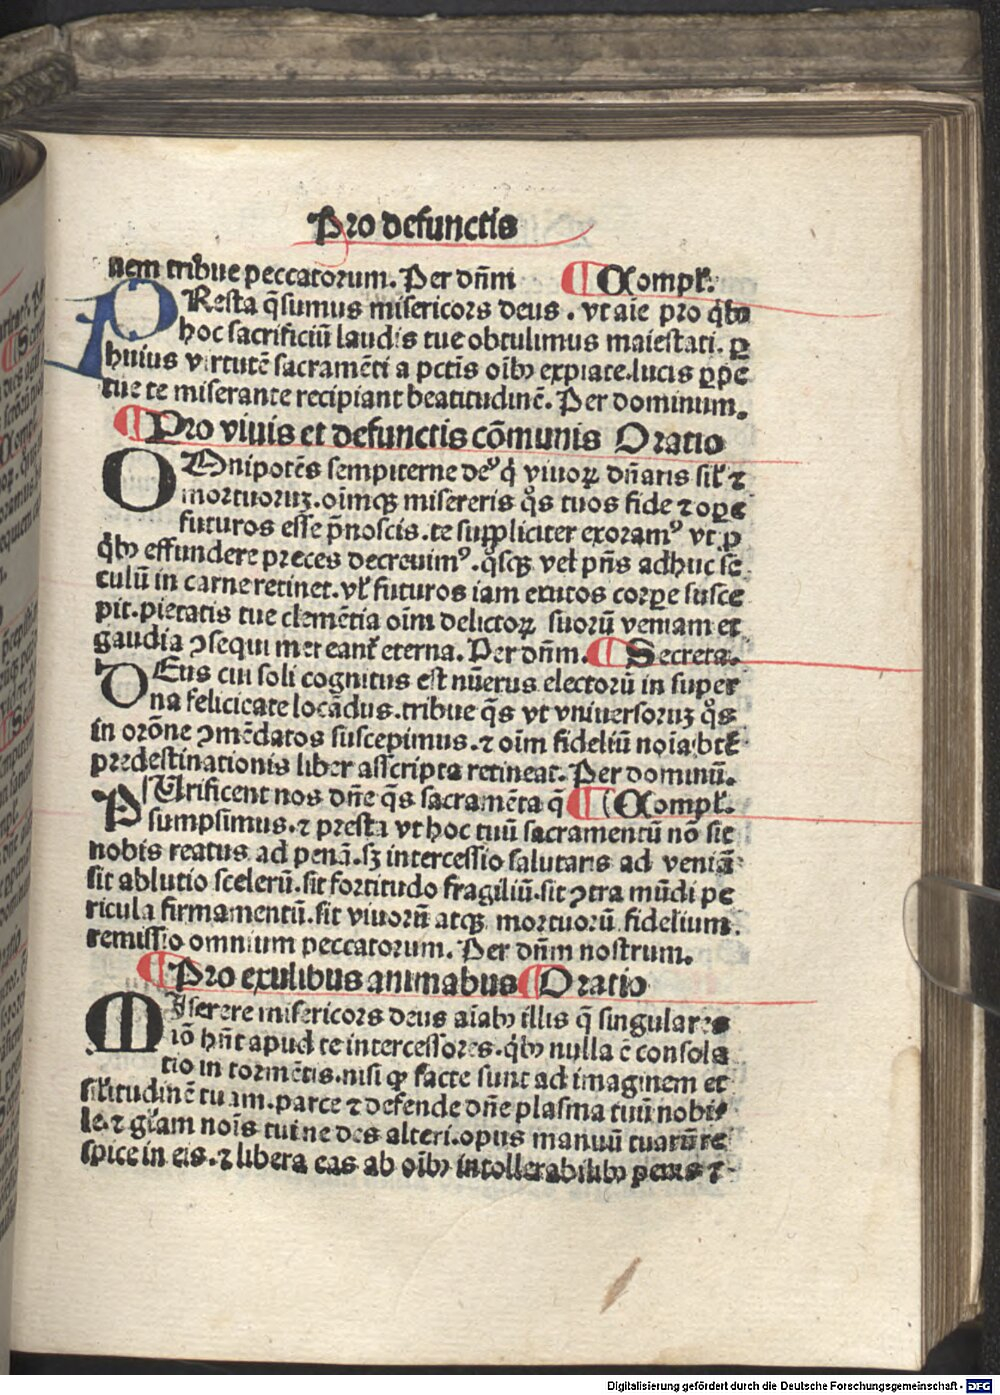 Pro defunctis
nem tribue peccatorum. Per dn̄m ¶ Complꝰ.
PResta q̄sumus misericors deus . vt aīe pro qͥbꝰ
hoc sacrificiū laudis tue obtulimus maiestati. ꝑ
huius virtutē sacramēti a pctīs oībꝰ expiate. lucis ꝑpe
tue te miserante recipiant beatitudinē. Per dominum.
¶ Pro viuis et defunctis cōmunis Oratio
OMnipotēs sempiterne deꝰ qͥ viuoꝝ dn̄aris sil̄ ⁊
mortuoruꝫ. oīmqꝫ misereris qͦs tuos fide ⁊ oꝑe
futuros esse p̄noscis. te suppliciter exoramꝰ vt ꝓ
qͥbꝰ effundere preces decreuimꝰ. qͦsqꝫ vel pn̄s adhuc se
culū in carne retinet. vl̓ futuros iam exutos corꝑe susce
pit. pietatis tue clemētia oīm delictoꝝ suorū veniam et
gaudia ꝯsequi mereant᷑ eterna. Per dn̄m. ¶ Secreta.
DEus cui soli cognitus est nūerus electorū in super
na felicitate locādus. tribue q̄s vt vniuersoruꝫ qͦs
in orōne ꝯmēdatos suscepimus. ⁊ oīm fideliū noīa btē
predestinationis liber asscripta retineat. Per dominū.
PUrificent nos dn̄e q̄s sacramēta q̄ ¶ Complꝰ.
sumpsimus. ⁊ presta vt hoc tuū sacramentū nō sit
nobis reatus ad penā. sꝫ intercessio salutaris ad veniā
sit ablutio scelerū. sit fortitudo fragiliū. sit ꝯtra mūdi pe
ricula firmamentū. sit viuorū atqꝫ mortuorū fidelium
remissio omnium peccatorum. Per dn̄m nostrum.
¶ Pro exulibus animabus ¶ Oratio
MIserere misericors deus aīabꝰ illis q̄ singulares
iō hn̄t apud te intercessores. qͥbꝰ nulla ē consola
tio in tormētis. nisi ꝙ facte sunt ad imaginem et
sil̓itudinē tuam. parce ⁊ defende dn̄e plasma tuū nobi
le. ⁊ gl̓iam noīs tui ne des alteri. opus manuū tuarū re
spice in eis. ⁊ libera eas ab oībꝰ intollerabilibꝰ penis ⁊
Digitalisierung gefördert durch die Deutsche Forschungsgemeinschaft - DFG